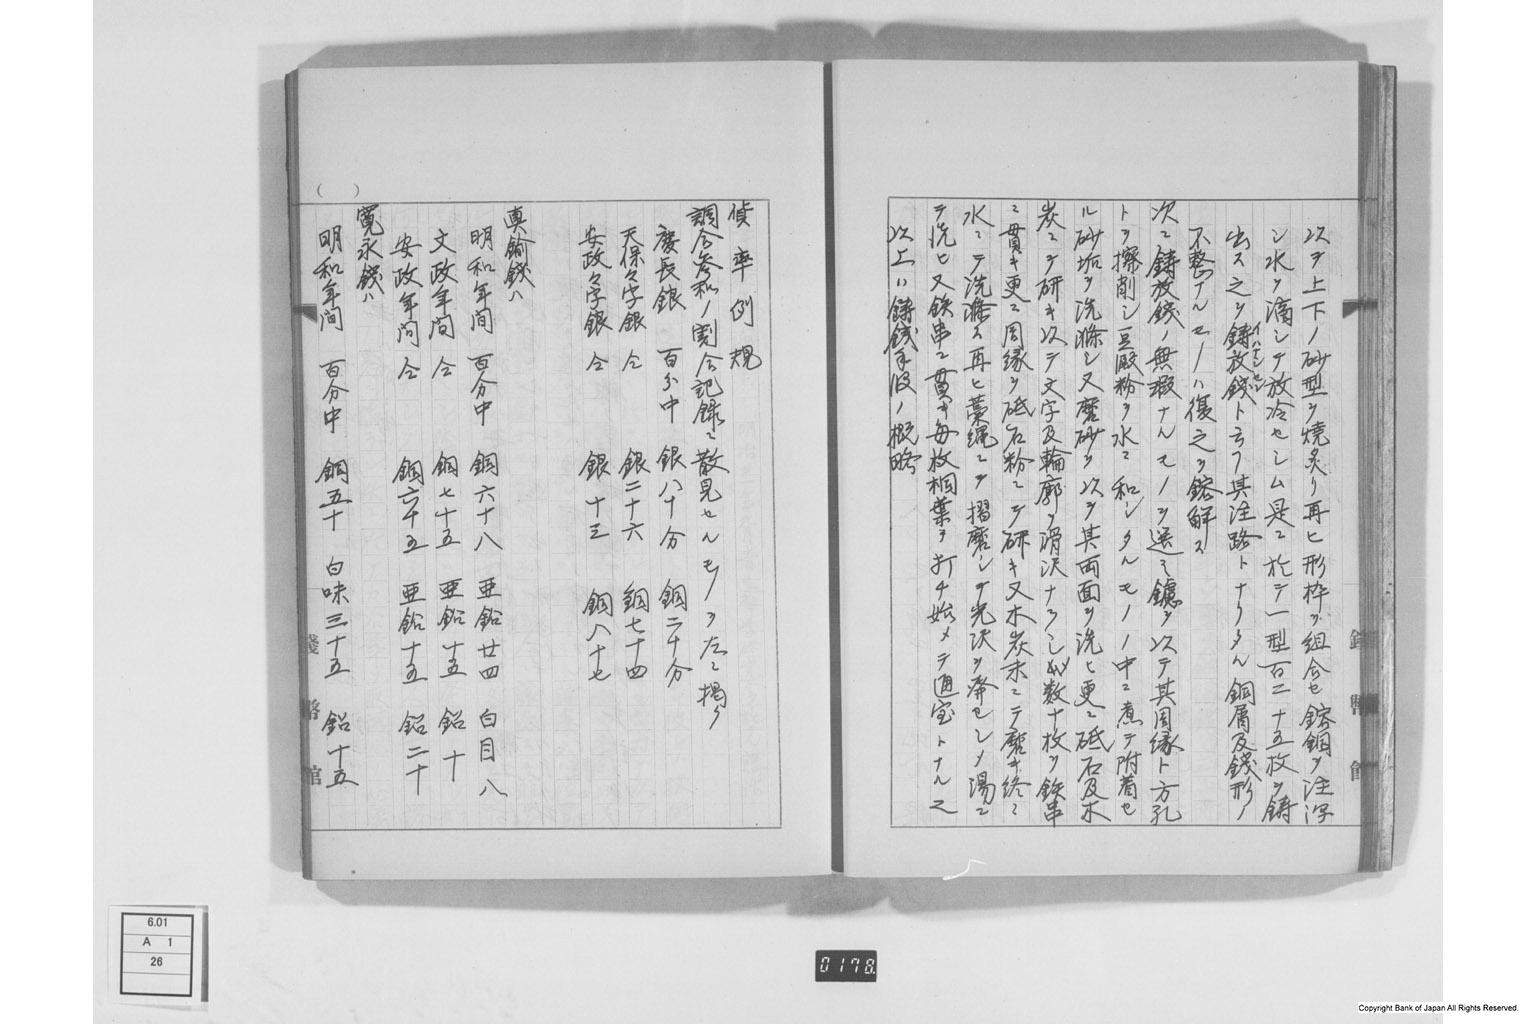 次ヲ上下ノ砂型ヲ焼炙リ再ヒ形枠ヲ組合セ鎔銅ヲ注瀉
シ水ヲ滴シテ放冷セシム是ニ於テ一型百二十五枚ヲ鋳
出ス之ヲ鋳放銭ト云フ其注路トナリタル銅屑及銭形ノ
イハナシセン
不整ナルモノハ復之ヲ鎔解ス
次ニ鋳放銭ノ無瑕ナルモノヲ選ミ鑢ヲ以テ其周縁ト方孔
トヲ擦削シ豆殿粉ヲ水ニ和シタルモノノ中ニ煮テ附着セ
ル砂垢ヲ洗滌シ又磨砂ヲ以テ其両面ヲ洗ヒ更ニ砥石及木
炭ニテ研キ以テ文字及輪廓ヲ滑沢ナラシメ数十枚ヲ鉄串
ニ貫キ更ニ周縁ヲ砥石粉ニテ研キ又木炭末ニテ磨キ終ニ
水ニテ洗滌ス再ヒ藁縄ニテ摺磨シテ光沢ヲ発セシメ湯ニ
テ洗ヒ又鉄串ニ貫キ毎枚桐葉ヲ打チ始メテ通宝トナル之
以上ハ鋳銭手段ノ概略
貨率例規
調合参和ノ割合記録ニ散見セルモノヲ左ニ掲ク
慶長銀 百分中 銀八十分 銅二十分
天保々字銀 仝 銀二十六 銅七十四
安政々字銀 仝 銀十三 銅八十七
真鍮銭ハ
明和年间 百分中 銅六十八 亜鉛廿四 白目八
文政年间 仝 銅七十五 亜鉛十五 鉛十
安政年间 仝 銅六十五 亜鉛十五 鉛二十
寛永銭ハ
明和年间 百分中 銅五十 白味三十五 鉛十五
銭幣館
6.01
A 1
26
0178
Copyright Bank of Japan All Rights Reserved.